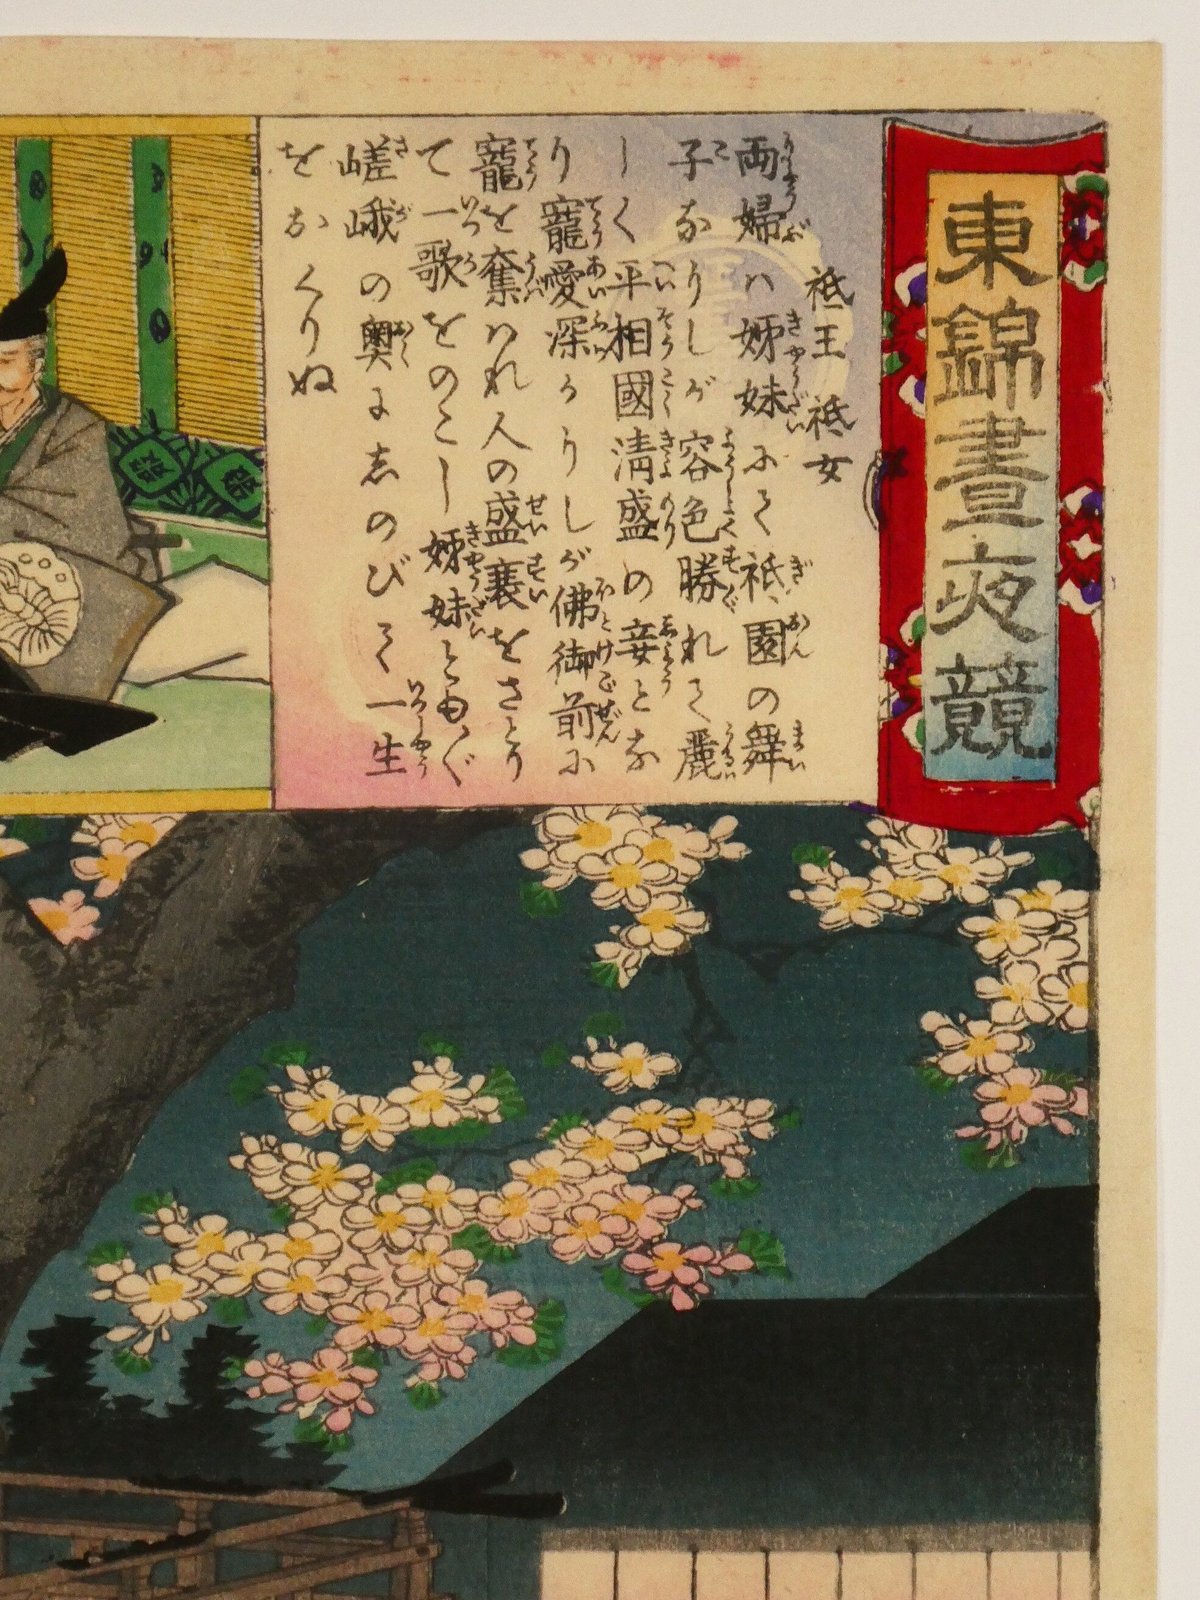 東錦晝夜競
祗王 祗女
両婦ハ姉妹にて祗園の舞
子なりしが容色勝れて麗
しく平相國清盛の妾とな
り寵愛深かりしが佛御前に
寵を奪ハれ人の盛衰をさとり
て一歌をのこし姉妹ともぐ
嵯峨の奥にしのびて一生
をおくりぬ